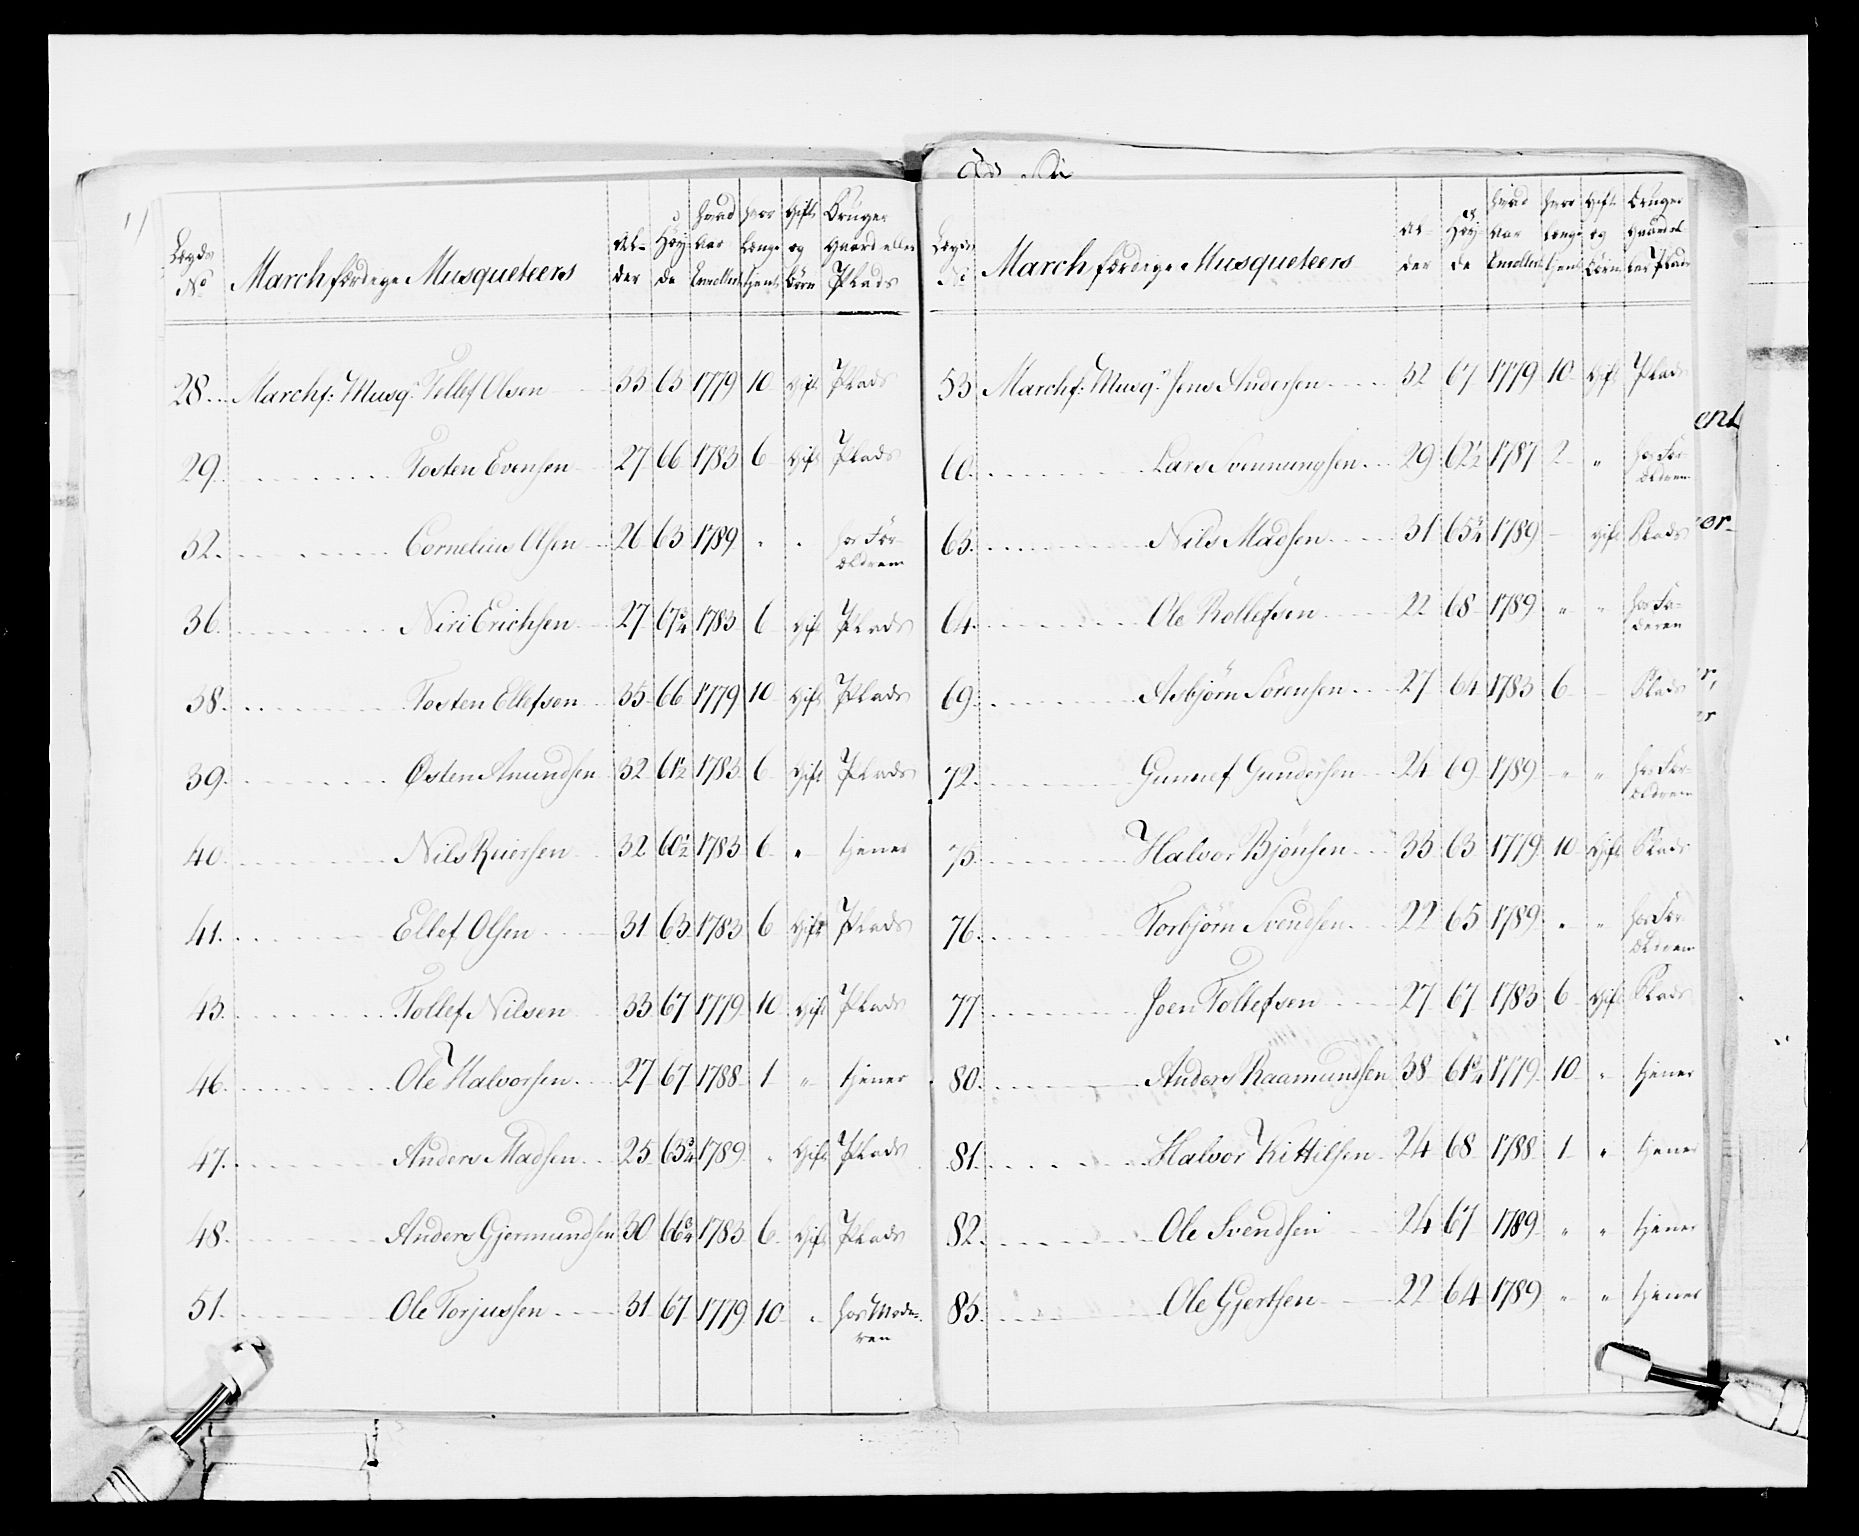 Lægds No March færdige Musqueteers Al-der Høy-de hvad Aar Enrolleret hvor Længe tient Gift og Børn Bruger Gaard eller Plads
28. Marchf: Musq: Tellef Olsen 33 63 1779 10 Gift Plads
29. Tosten Evensen 27 66 1783 6 Gift Plads
32. Cornelius Olsen 26 63 1789 " " hos For-
ældrene
36. Niri Erichsen 27 67 3/4 1783 6 Gift Plads
38. Tosten Ellefsen 35 66 1779 10 Gift Plads
39. Østen Amundsen 32 61 1/2 1783 6 Gift Plads
40. Nils Reiersen 32 60 1/2 1783 6 " tiener
41. Ellef Olsen 31 63 1783 6 Gift Plads
43. Tollef Nilsen 33 67 1779 10 Gift Plads
46. Ole Halvorsen 27 67 1788 1 " tiener
47. Anders Madsen 25 65 3/4 1789 " Gift Plads
48. Anders Gjermundsen 30 66 3/4 1783 6 Gift Plads
51. Ole Torjussen 31 67 1779 10 " hos Mode-
ren
Lægds No March færdige Musqueteers Al-der Høy-de hvad Aar Enrolleret hvor længe tient Gift og Børn Bruger Gaard el-ler Plads
53 Marchf: Musq: Jens Andersen 32 67 1779 10 Gift Plads
60. Lars Svennungsen 29 62 1/2 1787 2 " hos For-
ældrene
63. Nils Madsen 31 65 3/4 1789 - Gift Plads
64. Ole Rollefsen 22 68 1789 " " hos Fa-
deren
69. Asbjørn Sørensen 27 64 1783 6 - Plads
72. Gunuf Gundersen 24 69 1789 " " hos For-
ældrene
75. Halvor Bjønsen 33 63 1779 10 Gift Plads
76. Torbjørn Svendsen 22 65 1789 " " hos For-
ældrene
77. Joen Tollefsen 27 67 1783 6 Gift Plads
80. Anders Raamundsen 38 61 3/4 1779 10 " tiener
81. Halvor Kittilsen 24 68 1788 1 " tiener
82. Ole Svendsen 24 67 1789 " " tiener
83. Ole Gjertsen 22 64 1789 " " tiener